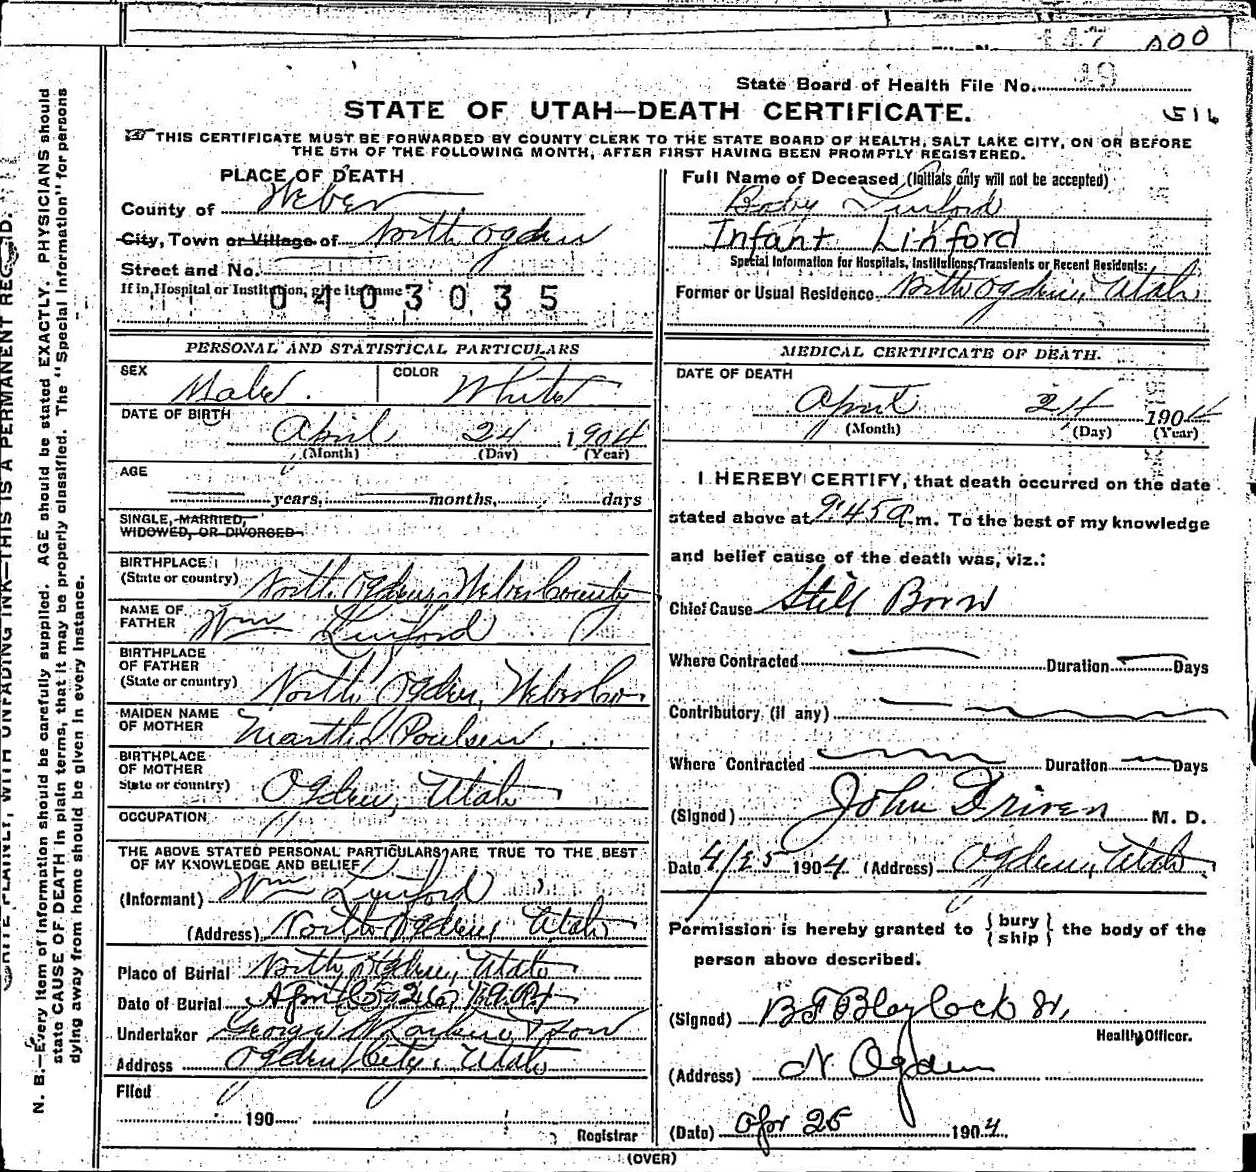 147 000
State Board of Health File No. 49
STATE OF UTAH—DEATH CERTIFICATE.
516
THIS CERTIFICATE MUST BE FORWARDED BY COUNTY CLERK TO THE STATE BOARD OF HEALTH, SALT LAKE CITY, ON OR BEFORE
THE 5TH OF THE FOLLOWING MONTH, AFTER FIRST HAVING BEEN PROMPTLY REGISTERED.
PLACE OF DEATH
County of Weber
City, Town or Village of North Ogden
Street and No.
If in Hospital or Institution, give its name
0403035
Full Name of Deceased (Initials only will not be accepted)
Baby Linford
Infant Linford
Special Information for Hospitals, Institutions, Transients or Recent Residents:
Former or Usual Residence North Ogden, Utah
PERSONAL AND STATISTICAL PARTICULARS
SEX Male. COLOR White
DATE OF BIRTH
April 24 1904
(Month) (Day) (Year)
AGE
years, months, days
SINGLE, MARRIED,
WIDOWED, OR DIVORCED
BIRTHPLACE
(State or country) North Ogden, Weber County
NAME OF
FATHER Wm Linford
BIRTHPLACE
OF FATHER
(State or country) North Ogden, Weber Co.
MAIDEN NAME
OF MOTHER Martha Poulsen.
BIRTHPLACE
OF MOTHER
State or country) Ogden, Utah
OCCUPATION
THE ABOVE STATED PERSONAL PARTICULARS ARE TRUE TO THE BEST
OF MY KNOWLEDGE AND BELIEF
(Informant) Wm Linford
(Address) North Ogden, Utah
Place of Burial North Ogden, Utah
Date of Burial April
Undertaker George W. & Son
Address Ogden City, Utah
Filed
190
Registrar
MEDICAL CERTIFICATE OF DEATH.
DATE OF DEATH
April 24 1904
(Month) (Day) (Year)
I HEREBY CERTIFY, that death occurred on the date
stated above at 9:45 a.m. To the best of my knowledge
and belief cause of the death was, viz.:
Chief Cause Still Born
Where Contracted Duration Days
Contributory (if any)
Where Contracted Duration Days
(Signed) John Driven M. D.
Date 4/25 1904. (Address) Ogden, Utah
Permission is hereby granted to {bury
ship} the body of the
person above described.
(Signed) B F Blaylock Sr,
Health Officer.
(Address) N. Ogden
(Date) Apr 25 1904.
(OVER)
N. B.—Every item of information should be carefully supplied. AGE should be stated EXACTLY. PHYSICIANS should
state CAUSE OF DEATH in plain terms, that it may be properly classified. The "Special Information" for persons
dying away from home should be given in every instance.
PLAINLY, WITH UNFADING INK—THIS IS A PERMANENT RECORD.